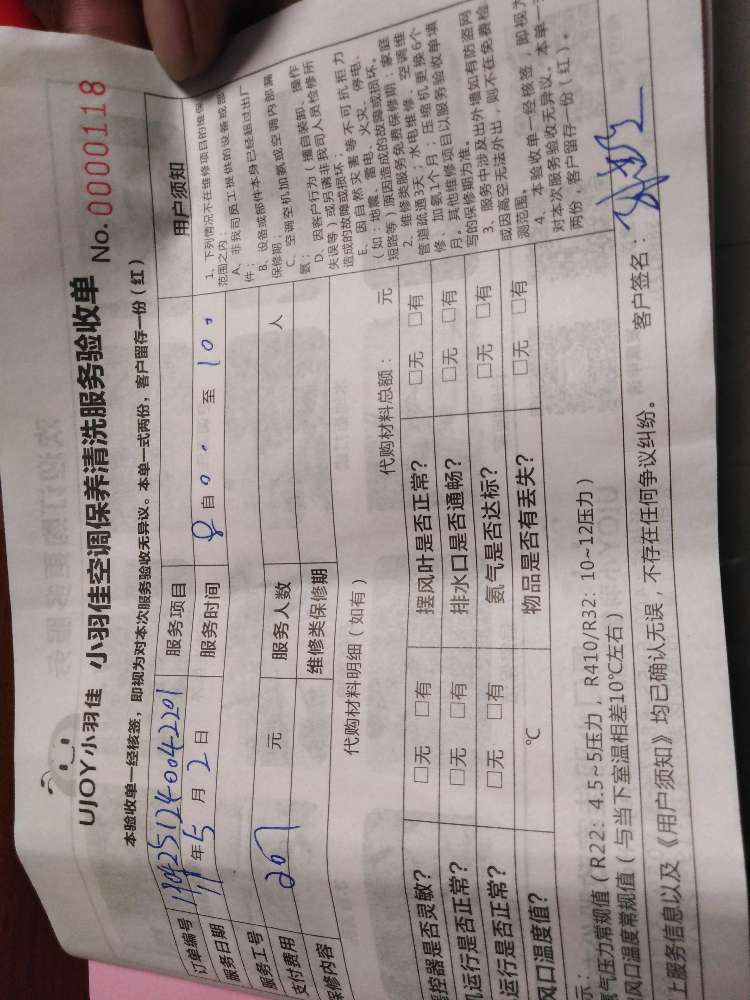 UJOY小羽佳 小羽佳空调保养清洗服务验收单 No. 0000118
本验收单一经核签，即视为对本次服务验收无异议。本单一式两份，客户留存一份（红）
订单编号 服务项目 用户须知
服务日期 年 5 月 2 日 服务时间 8 自 0 0 至 100
服务工号
支付费用 201 元 服务人数 人
保修内容 维修类保修期
代购材料明细（如有） 代购材料总额： 元
控器是否灵敏？ □无 □有 摆风叶是否正常？ □无 □有
机运行是否正常？ □无 □有 排水口是否通畅？ □无 □有
运行是否正常？ □无 □有 氨气是否达标？ □无 □有
风口温度值？ ℃ 物品是否有丢失？ □无 □有
1、下列情况不在维修项目的维保
范围之内：
A、非我司员工提供的设备或部
件；
B、设备或部件本身已经超过出厂
保修期；
C、空调空机加氨或空调内部漏
氨；
D、因客户行为（擅自装卸、操作
失误等）或另请非我司人员检修所
造成的故障或损坏；
E、因自然灾害等不可抗拒力
（如：地震、雷电、火灾、停电、
短路等）原因造成的故障或损坏。
2、维修类服务免费保修期：家庭
管道疏通3天；水电维修、空调维
修、加氨1个月；压缩机更换6个
月。其他维修项目以服务验收单填
写的保修期为准。
3、服务中涉及出外墙如有防盗网
或因高空无法外出，则不在免费检
测范围。
4、本验收单一经核签，即视为
对本次服务验收无异议。本单一
两份，客户留存一份（红）。
示：
氨气压力常规值（R22：4.5~5压力，R410/R32：10~12压力）
风口温度常规值（与当下室温相差10℃左右）
上服务信息以及《用户须知》均已确认无误，不存在任何争议纠纷。 客户签名：